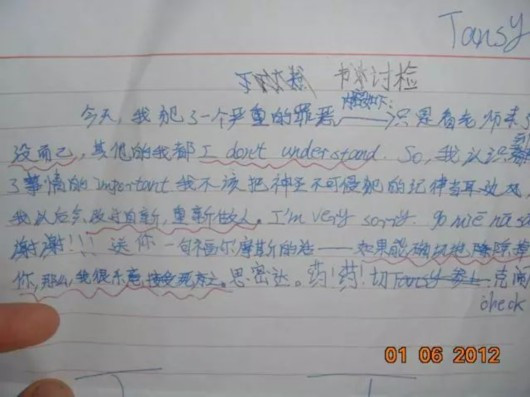 Tansy
书本讨检
今天,我犯了一个严重的罪恶——只是看老师来了
没有已,其他的我都 I don't understand. So,我认识到
了事情的 important 我不该把神圣不可侵犯的纪律当耳边风
我以后会改过自新,重新做人。I'm very sorry.
谢谢!!! 送你一句福尔摩斯的话——如果能确切地除掉
你,那么我很乐意接受死亡。思密达。药!药!切克闹
check
01 06 2012